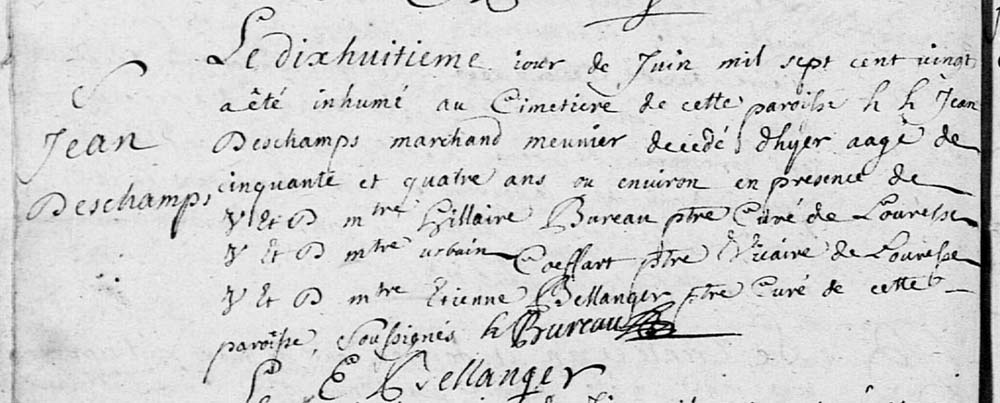 Le dixhuitieme iour de Juin mil sept cent vingt
a êté inhumé au Cimetiere de cette paroisse h h Jean
Jean
Deschamps marchand meunier decedé d'hÿer aagé de
Deschamps
cinquante et quatre ans ou environ en presence de
V et D mtre hillaire Bureau ptre Curé de Louresse
V et D mtre urbain Coeffart ptre Vicaire de Louresse
V et D mtre Etienne Bellanger ptre Curé de cette
paroisse, soussignés h Bureau
E Bellanger